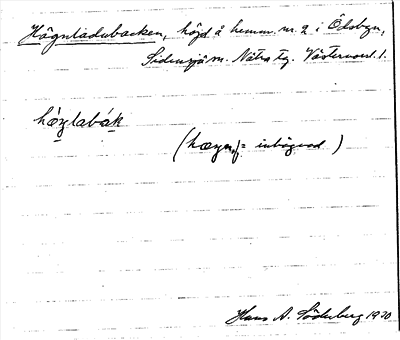 Högnladubacken, höjd å hemm. nr. 2 i Ödsbyn,
Sidensjö sn. Nätra tg. Västernorrl. l.
hǻγlabák
(hœγn, = inhägnad )
Hans A. Söderberg 1920